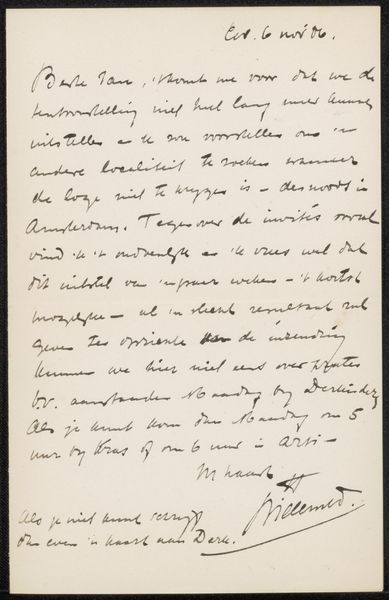 Ed. 6 nov 06.
Beste Jan, 't komt me voor dat we de
tentoonstelling niet heel lang meer kunnen
uitstellen en ik zou voorstellen om 'n
andere localiteit te zoeken wanneer
de loge niet te krijgen is – desnoods in
Amsterdam. Tegenover de invités vooral
vind ik 't onduidelijk en ik vrees wel dat
dit uitstel van 'n paar weken – 't kortst
mogelijke – al 'n slecht resultaat zal
geven ten opzichte de inzending
kunnen we hier niet eens over praten
b.v. aanstaanden Maandag by Derkinderen
Als je kunt kom dan Maandag om 5
uur by Kras of om 6 uur in Arti –
In haast
Als je niet kunt schrijf
dan even 'n kaart aan Derk.